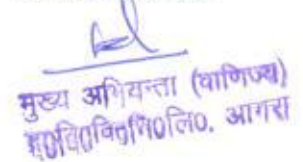 मुख्य अभियन्ता (वाणिज्य)
द०वि०वि०नि०लि०. आगरा